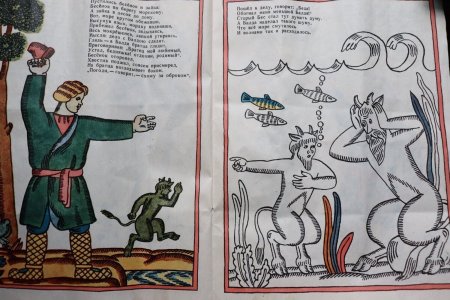 Бесёнок по берегу морскому,
А зайка в лесок до дому.
Вот, море кругом обежавши,
Высунув язык, мордку поднявши,
Прибежал бесёнок, задыхаясь,
Весь мокрёшенек, лапкой утираясь,
Мысля: дело с Балдою сладит.
Глядь — а Балда братца гладит,
Приговаривая: «Братец мой любимый,
Устал, бедняжка! отдохни, родимый!»
Бесёнок оторопел,
Хвостик поджал, совсем присмирел,
На братца поглядывает боком.
«Погоди,— говорит,— схожу за оброком».
Пошёл к деду, говорит: «Беда!
Обогнал меня меньшой Балда!»
Старый Бес стал тут думать думу.
А Балда наделал такого шуму,
Что всё море смутилось
И волнами так и расходилось.